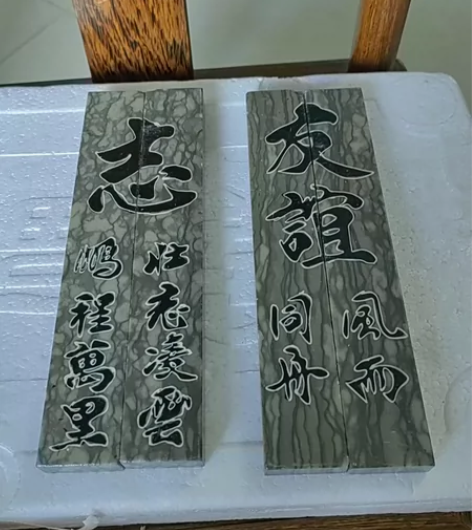 志
壮志凌雲
鵬程萬里
友誼
風雨
同舟